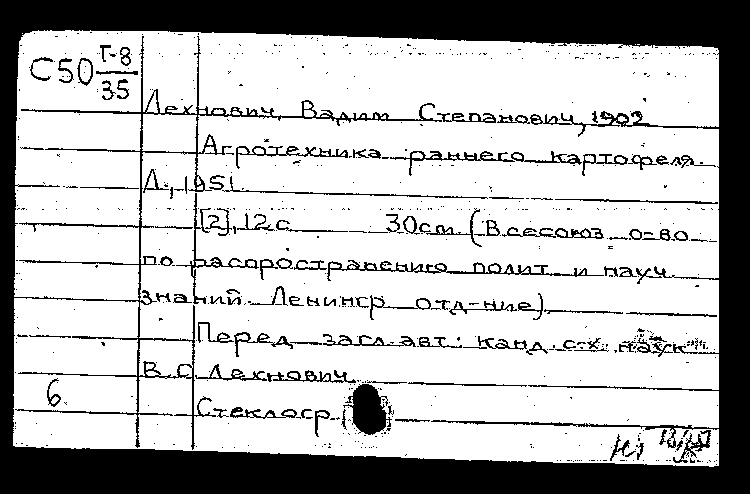 С50 Т-8
35
Лехнович, Вадим Степанович, 1902
Агротехника раннего картофеля.
Л., 1951.
[2], 12с 30см. (Всесоюз. о-во
по распространению полит. и науч.
знаний. Ленингр. отд-ние).
Перед загл. авт.: канд. с-х. наук
В.С. Лехнович.
6
Стеклогр.